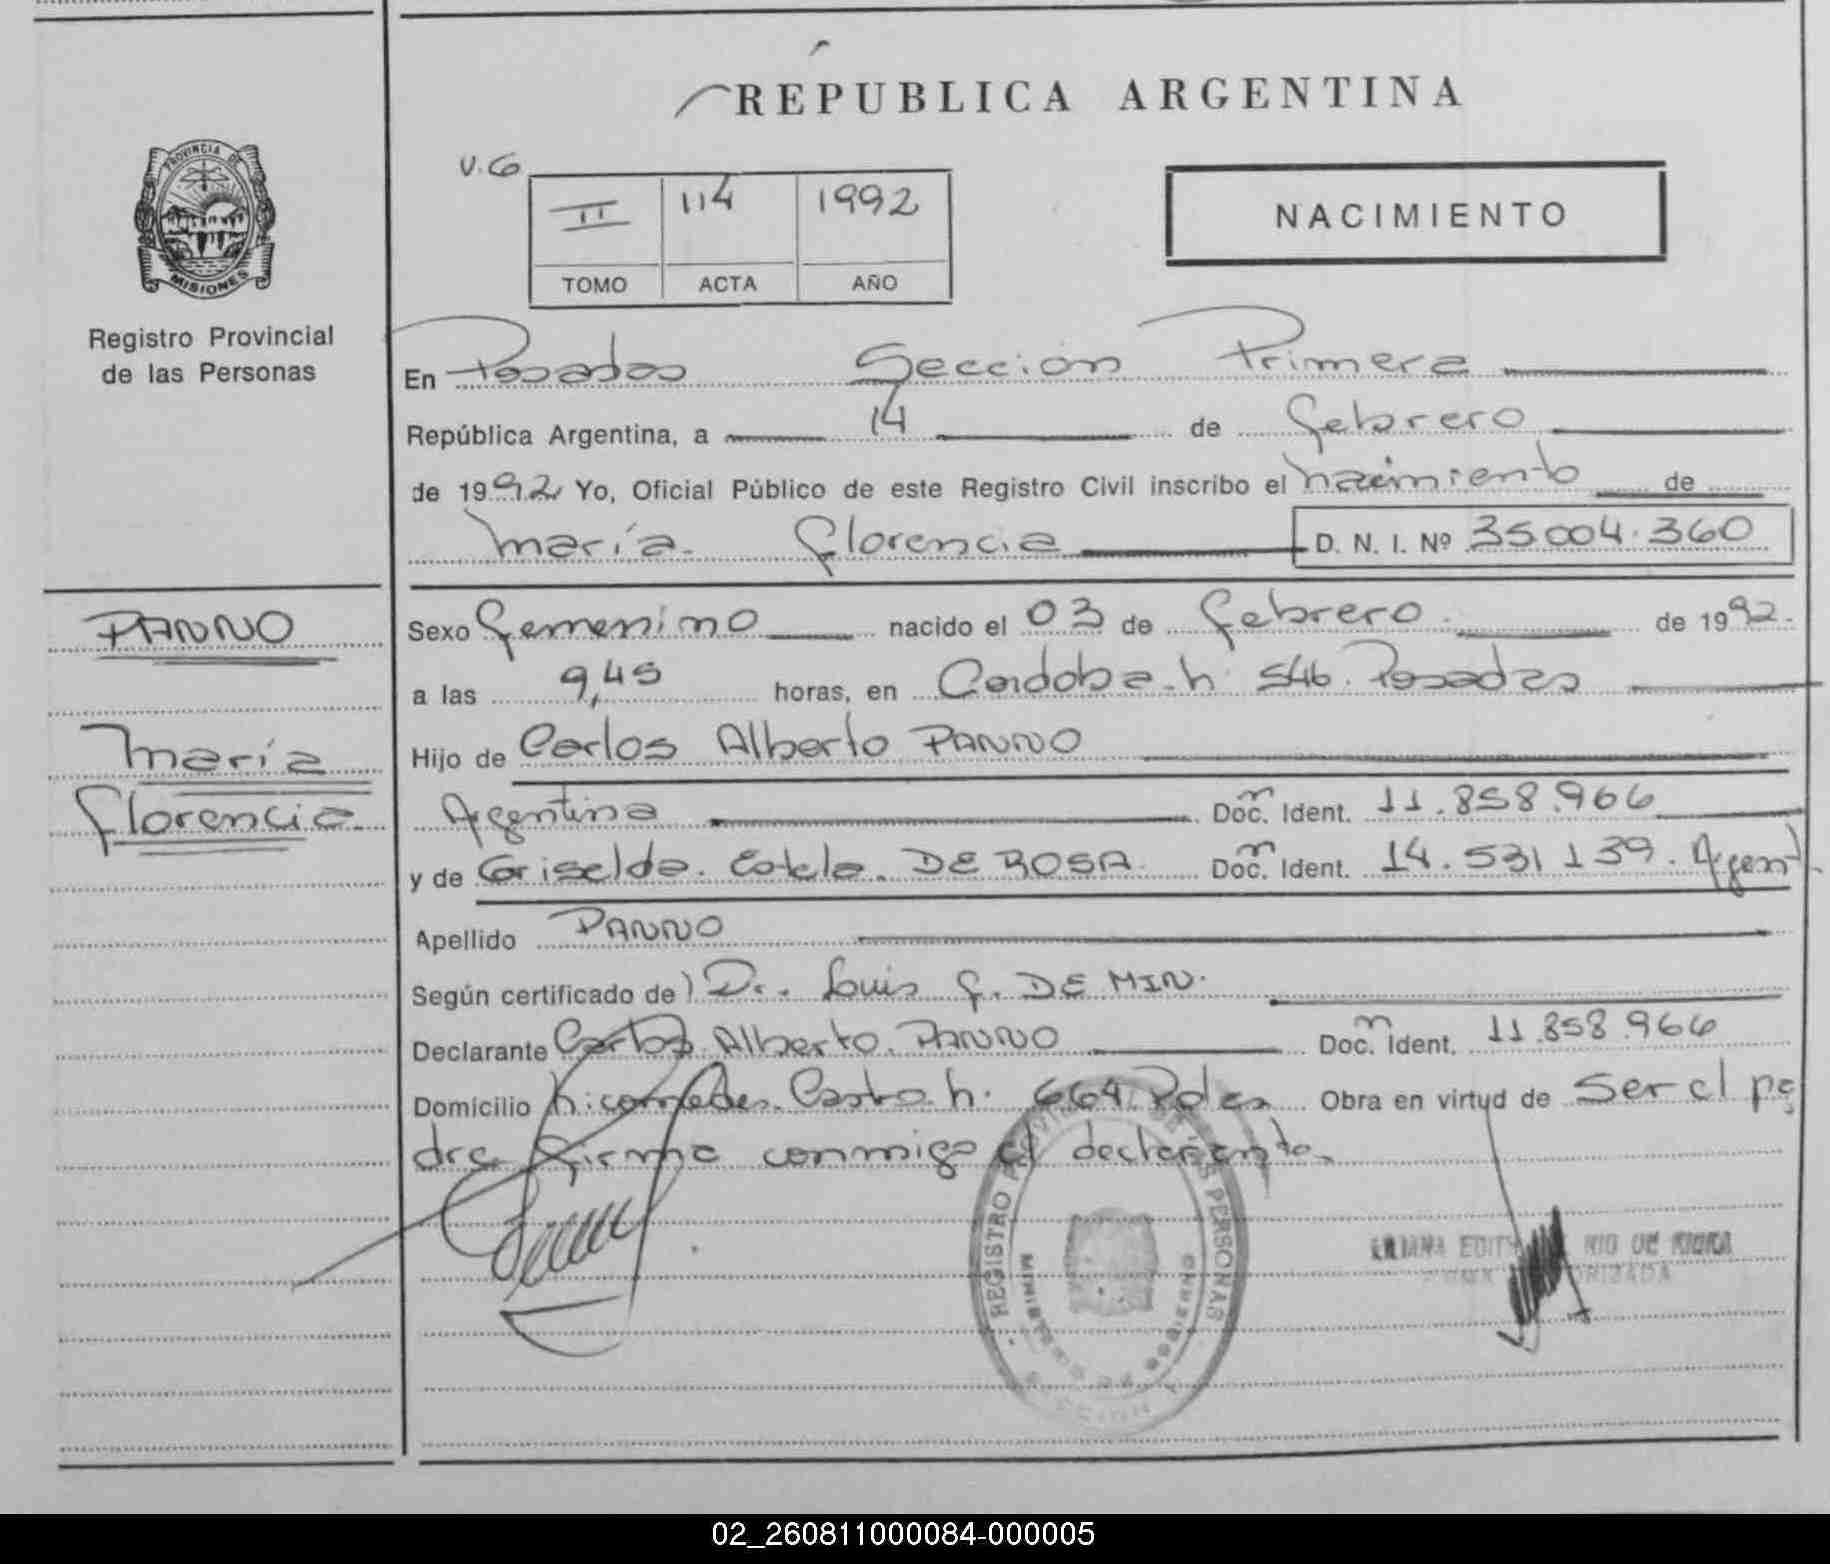 REPUBLICA ARGENTINA
V.G
II 114 1992
TOMO ACTA AÑO
NACIMIENTO
PROVINCIA DE
MISIONES
Registro Provincial
de las Personas
En Posadas Sección Primera
República Argentina, a 14 de febrero
de 1992 Yo, Oficial Público de este Registro Civil inscribo el nacimiento de
María Florencia D. N. I. Nº 35.004.360
PANNO
María
Florencia
Sexo femenino nacido el 03 de febrero de 1992.
a las 9,45 horas, en Cordoba n. 546. Posadas
Hijo de Carlos Alberto PANNO
Argentina Doc. Ident. 11.858.966
y de Griselda. Estela. DE ROSA. Doc. Ident. 14.531 139. Argent.
Apellido PANNO
Según certificado de Dr. Luis f. DE MIN.
Declarante Carlos Alberto. PANNO Doc. Ident. 11.858.966
Domicilio Nicomedes. Castro n. 664. Pdas Obra en virtud de ser el pa
dre firma conmigo el declarante.
REGISTRO PROVINCIAL DE LAS PERSONAS
02_260811000084-000005